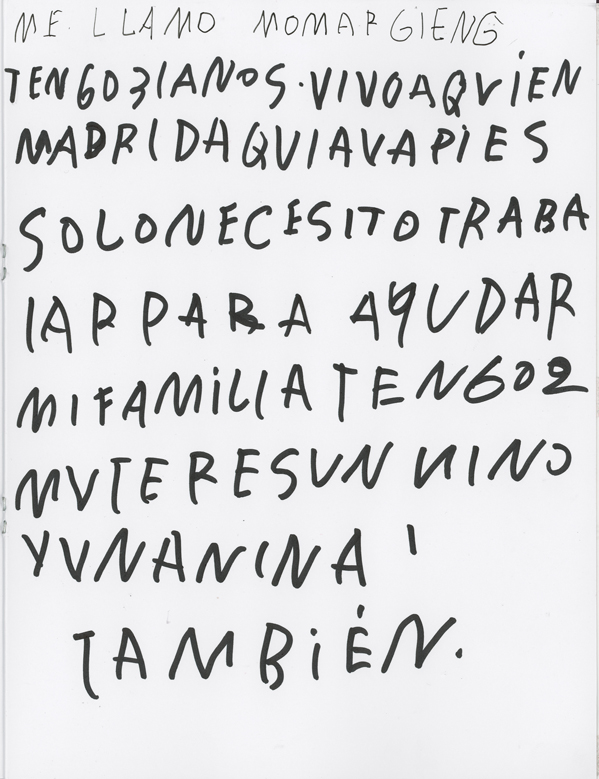 ME LLAMO MOMAR GIENG
TENGO31AÑOS.VIVOAQUíEN
MADRIDAQUIAVAPiES
SOLONECESITOTRABA
IARPARA AYUDAR
MIFAMiLIATENGO2
MUTERESUN NINO
YUNANINA'
TAMBiÉN.